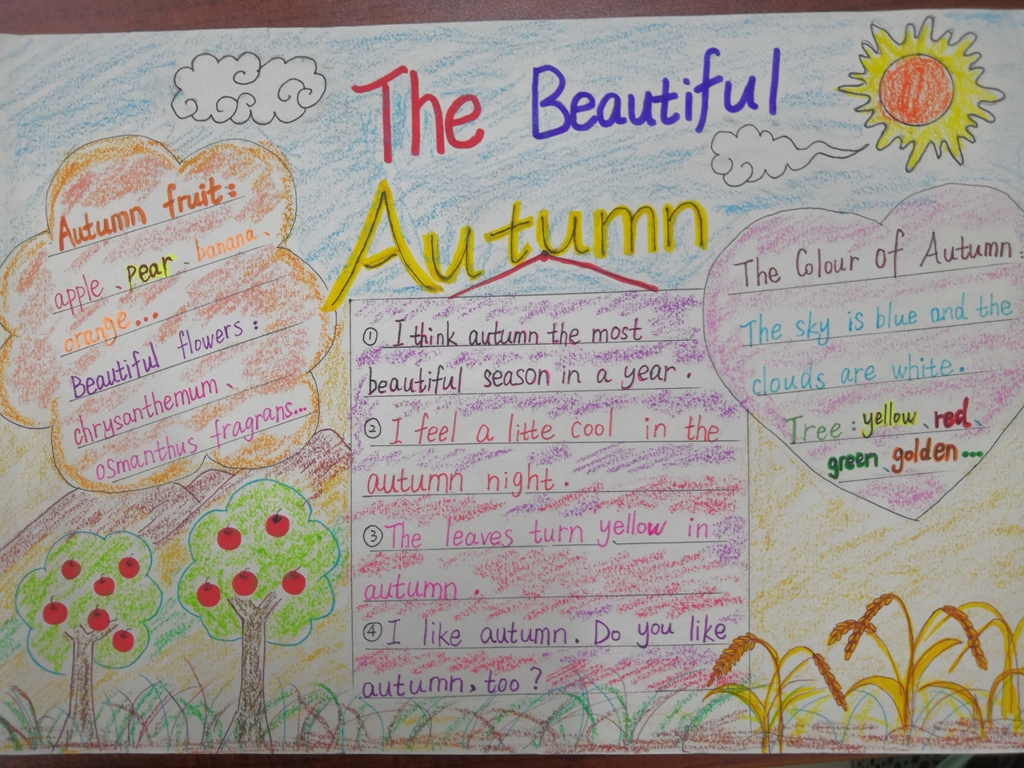 The Beautiful
Autumn
Autumn fruit:
apple、pear、banana、
orange...
Beautiful flowers:
chrysanthemum、
osmanthus fragrans...
① I think autumn the most
beautiful season in a year.
② I feel a litte cool in the
autumn night.
③ The leaves turn yellow in
autumn.
④ I like autumn. Do you like
autumn, too?
The Colour of Autumn:
The sky is blue and the
clouds are white.
Tree: yellow、red、
green、golden...